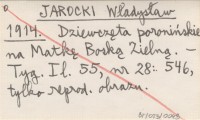 JAROCKI Władysław
1914. Dziewczęta poronińskie
na Matkę Boską Zielną. -
Tyg. Il. 55, nr 28: 546,
tylko reprod. obrazu.